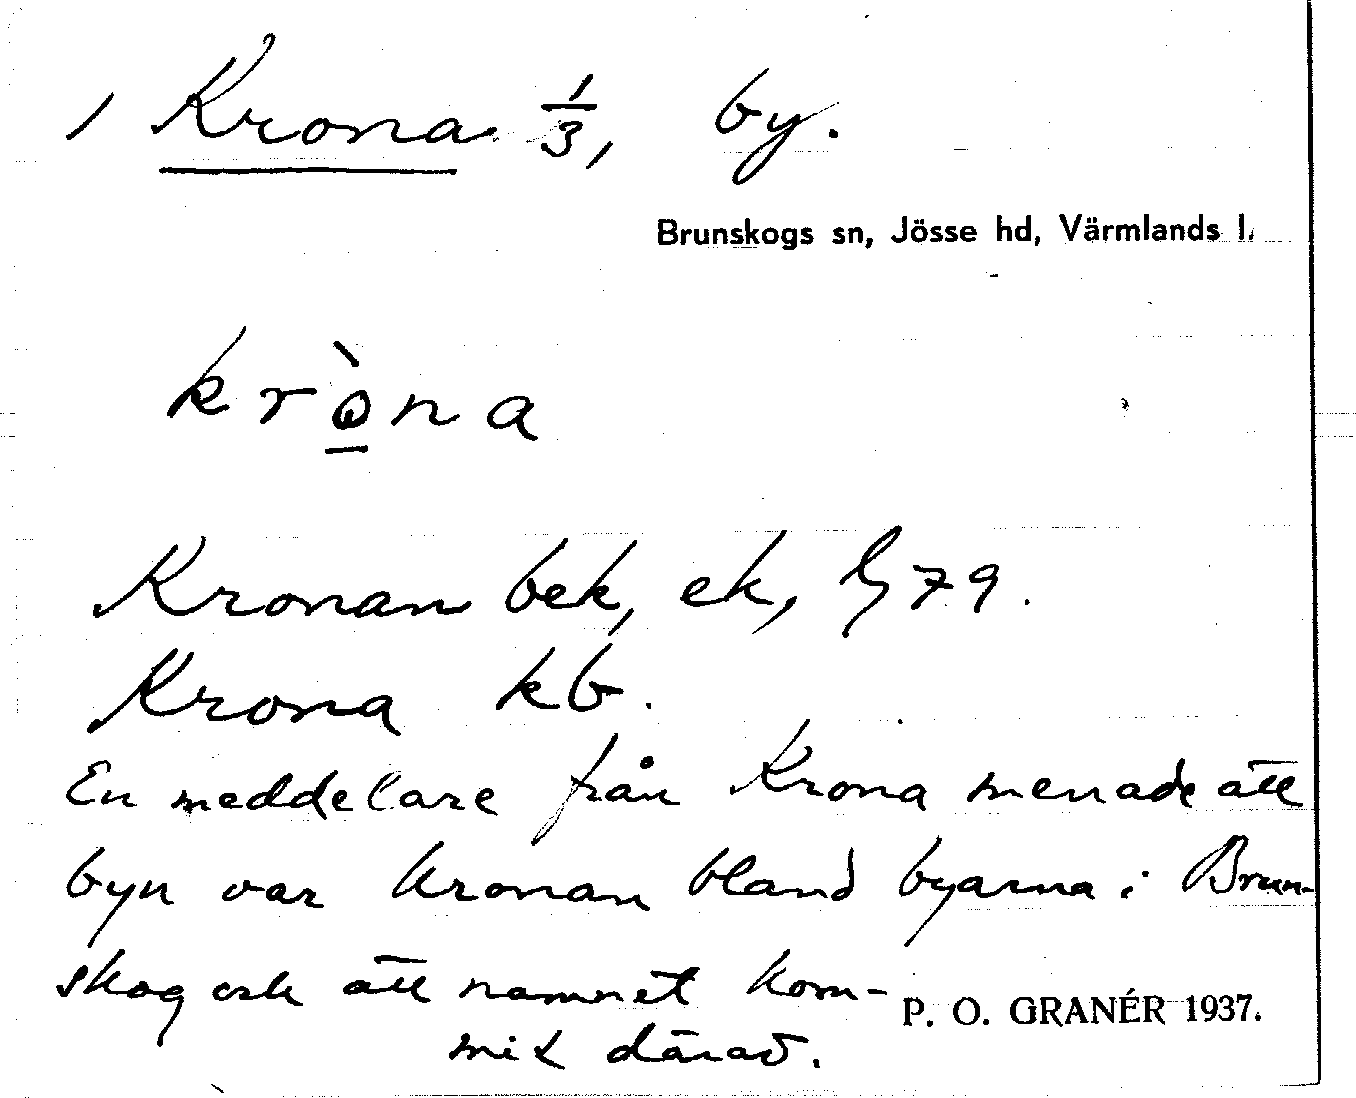 1 Krona 1/3, by.
Brunskogs sn, Jösse hd, Värmlands l.
kròna
Kronan bek, ek, 79.
Krona kb.
En meddelare från Krona menade att
byn var kronan bland byarna i Brun-
skog och att namnet kom-
mit därav.
P. O. GRANÉR 1937.